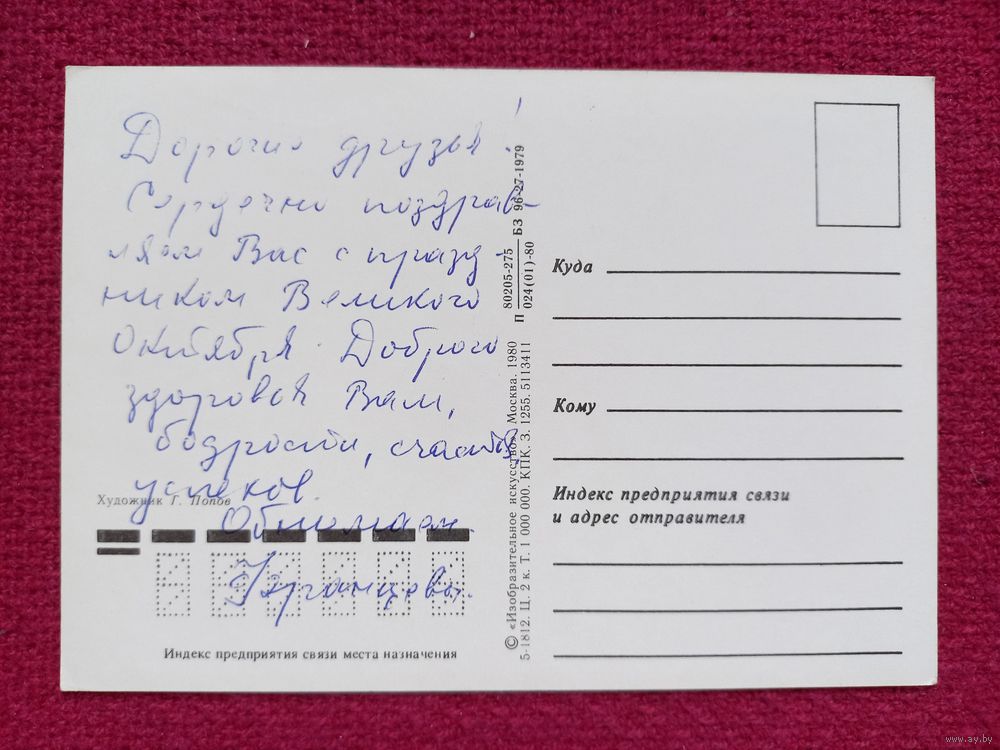 Дорогие друзья!
Сердечно поздрав-
ляем Вас с празд-
ником Великого
Октября. Доброго
здоровья Вам,
бодрости, счастья,
успехов.
Обнимаем.
Художник Г. Попов
Индекс предприятия связи места назначения
© «Изобразительное искусство». Москва. 1980
5-1812. Ц. 2 к. Т. 1 000 000. КПК. З. 1255. 5113411
П 80205-275 БЗ 96-27-1979
024(01)-80
Куда
Кому
Индекс предприятия связи
и адрес отправителя
www.ay.by